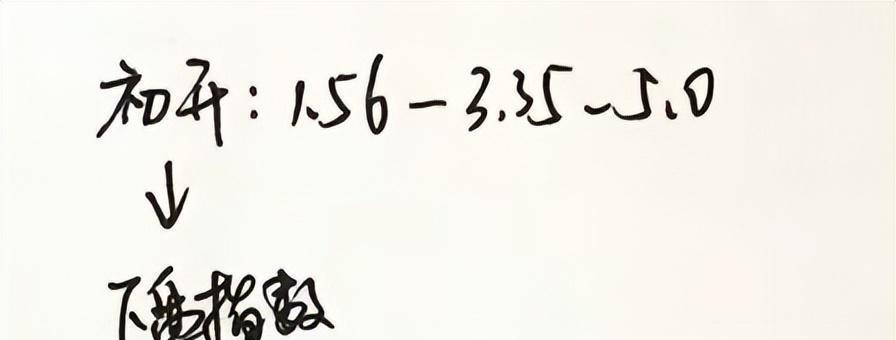 初开：1.56-3.35-5.0
↓
下盘指数